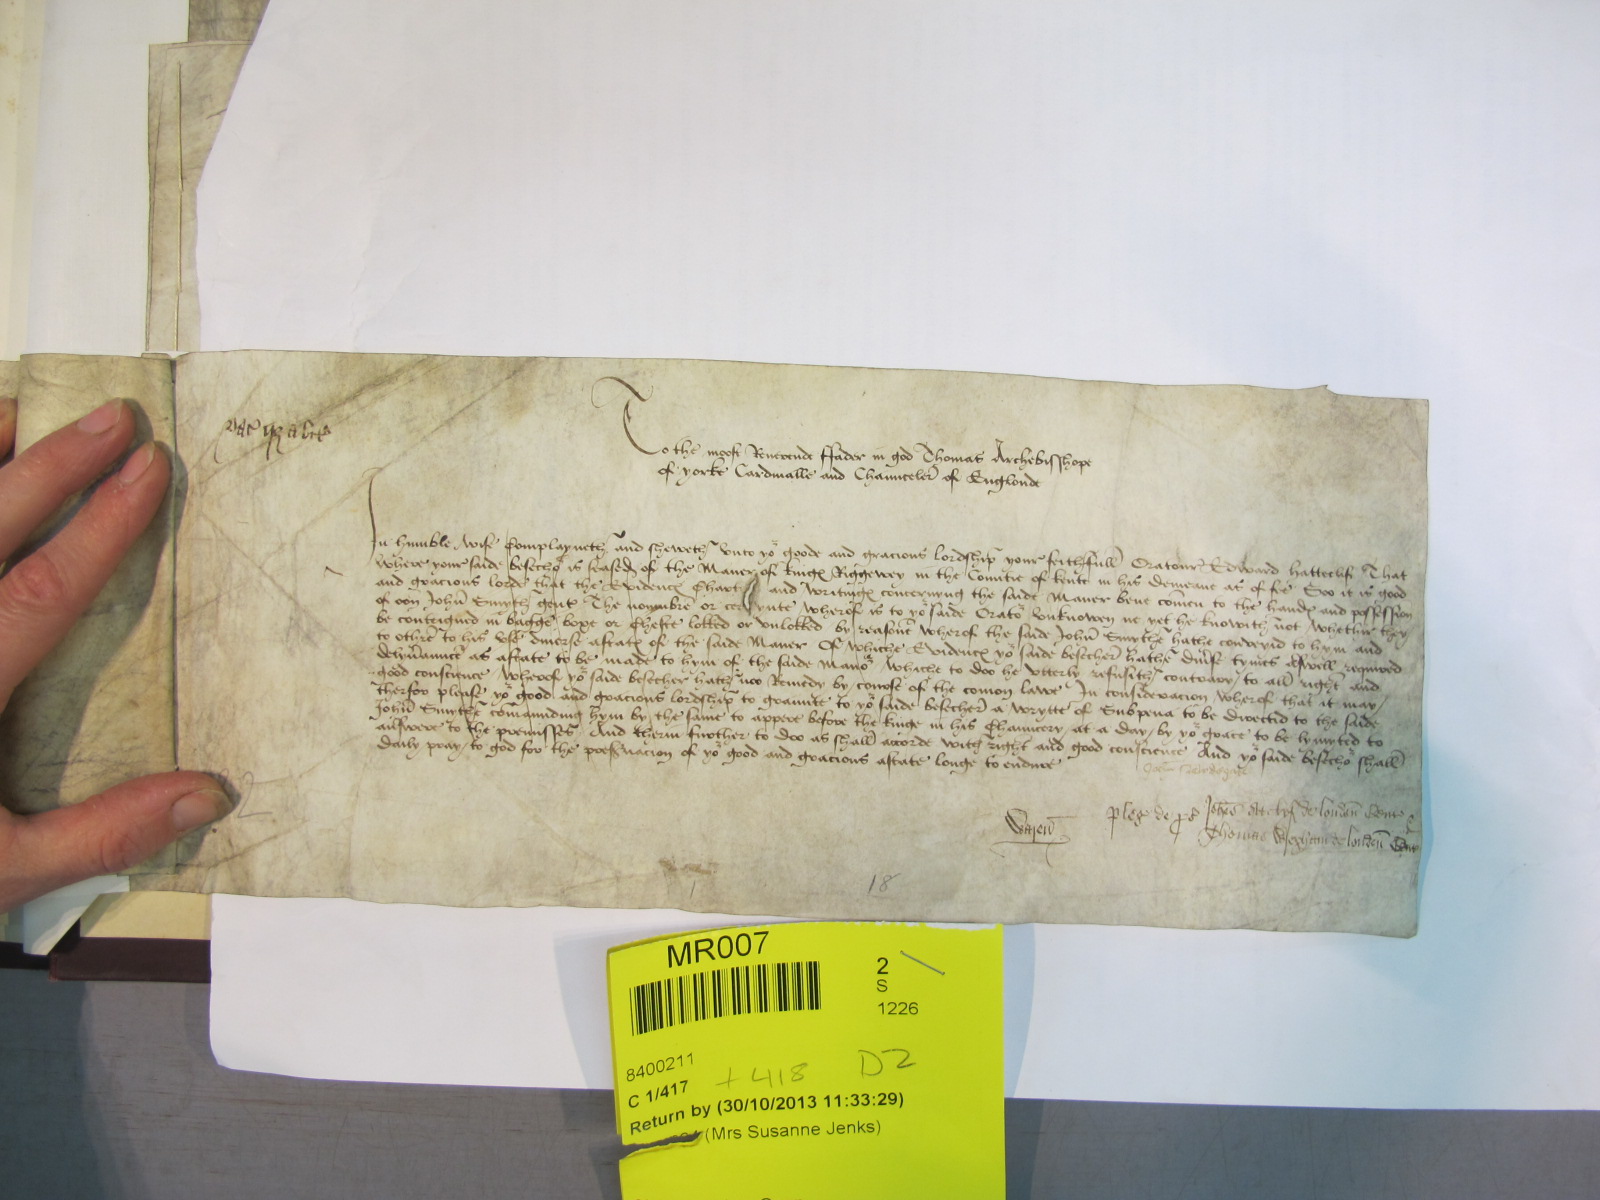 To the moste Reuerende ffader in god Thomas Archebisshope
of yorke Cardinalle and Chaunceler of Englonde
In humble wise Complayneth and sheweth vnto yor goode and gracious lordship your feithfull Oratour Edward hatteclif That
where your saide besechor is seased of the Maner of kinges Riggewey in the Countie of kente in his demeane as of fee Soo it is good
and gracious lorde that the Evidences Chartes and writinges concernyng the saide Maner bene comen to the handes and possession
of oon John Smyth gent The nombre or certeynte wherof is to yor saide Orator vnknowen ne yet he knowith not whethir they
be conteigned in bagge boxe or Cheste lokked or vnlokked by reason wherof the saide John Smythe hathe conveyid to hym and
to othre to his vse diuerse astates of the saide Maner Of whiche Evidences yor saide besecher hathe diuerse tymes aswell required
delyueraunce as astate to be made to hym of the saide Manor whiche to doo he vtterly refusith contrary to all right and
good conscience wherof yor saide besecher hath noo Remedy by course of the comon lawe In consideracion wherof that it may
therfor please yor good and gracious lordship to graunte to yor saide besecher a wrytte of Subpena to be directid to the saide
John Smythe comaunding hym by the same to appere before the kinge in his Chauncery at a day by yor grace to be lymyted to
answere to the premisses And therin further to doo as shall accorde with right and good conscience And yor saide besechor shall
daily pray to god for the preseruacion of yor good and gracious astate longe to endure
pleg de pr Johes de london Gent
Thomas de london Gent
18
MR007
2
S
1226
8400211
C 1/417 + 418 D2
Return by (30/10/2013 11:33:29)
(Mrs Susanne Jenks)